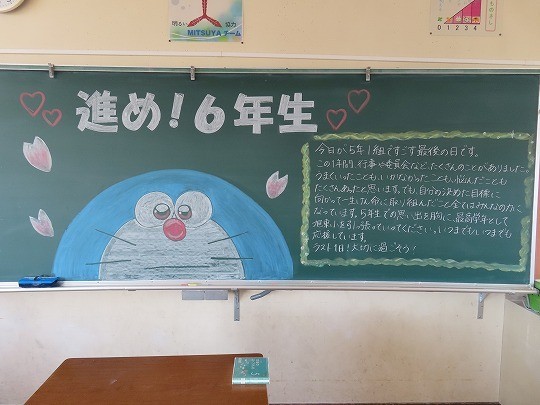 明るい 協力
MITSUYAチーム
0 1 2 3 4
進め!6年生
今日が5年1組ですごす最後の日です。
この1年間、行事や委員会などたくさんのことがありました。
うまくいったことも、いかなかったことも、悩んだことも
たくさんあったと思います。でも、自分の決めた目標に
向かって一生けん命に取り組んだこと全てはみんなの力に
なっています。5年生での思い出を胸に、最高学年として
旭東小を引っ張っていってください。いつまでも、いつまでも
応援しています。
ラスト1日!大切に過ごそう!
5